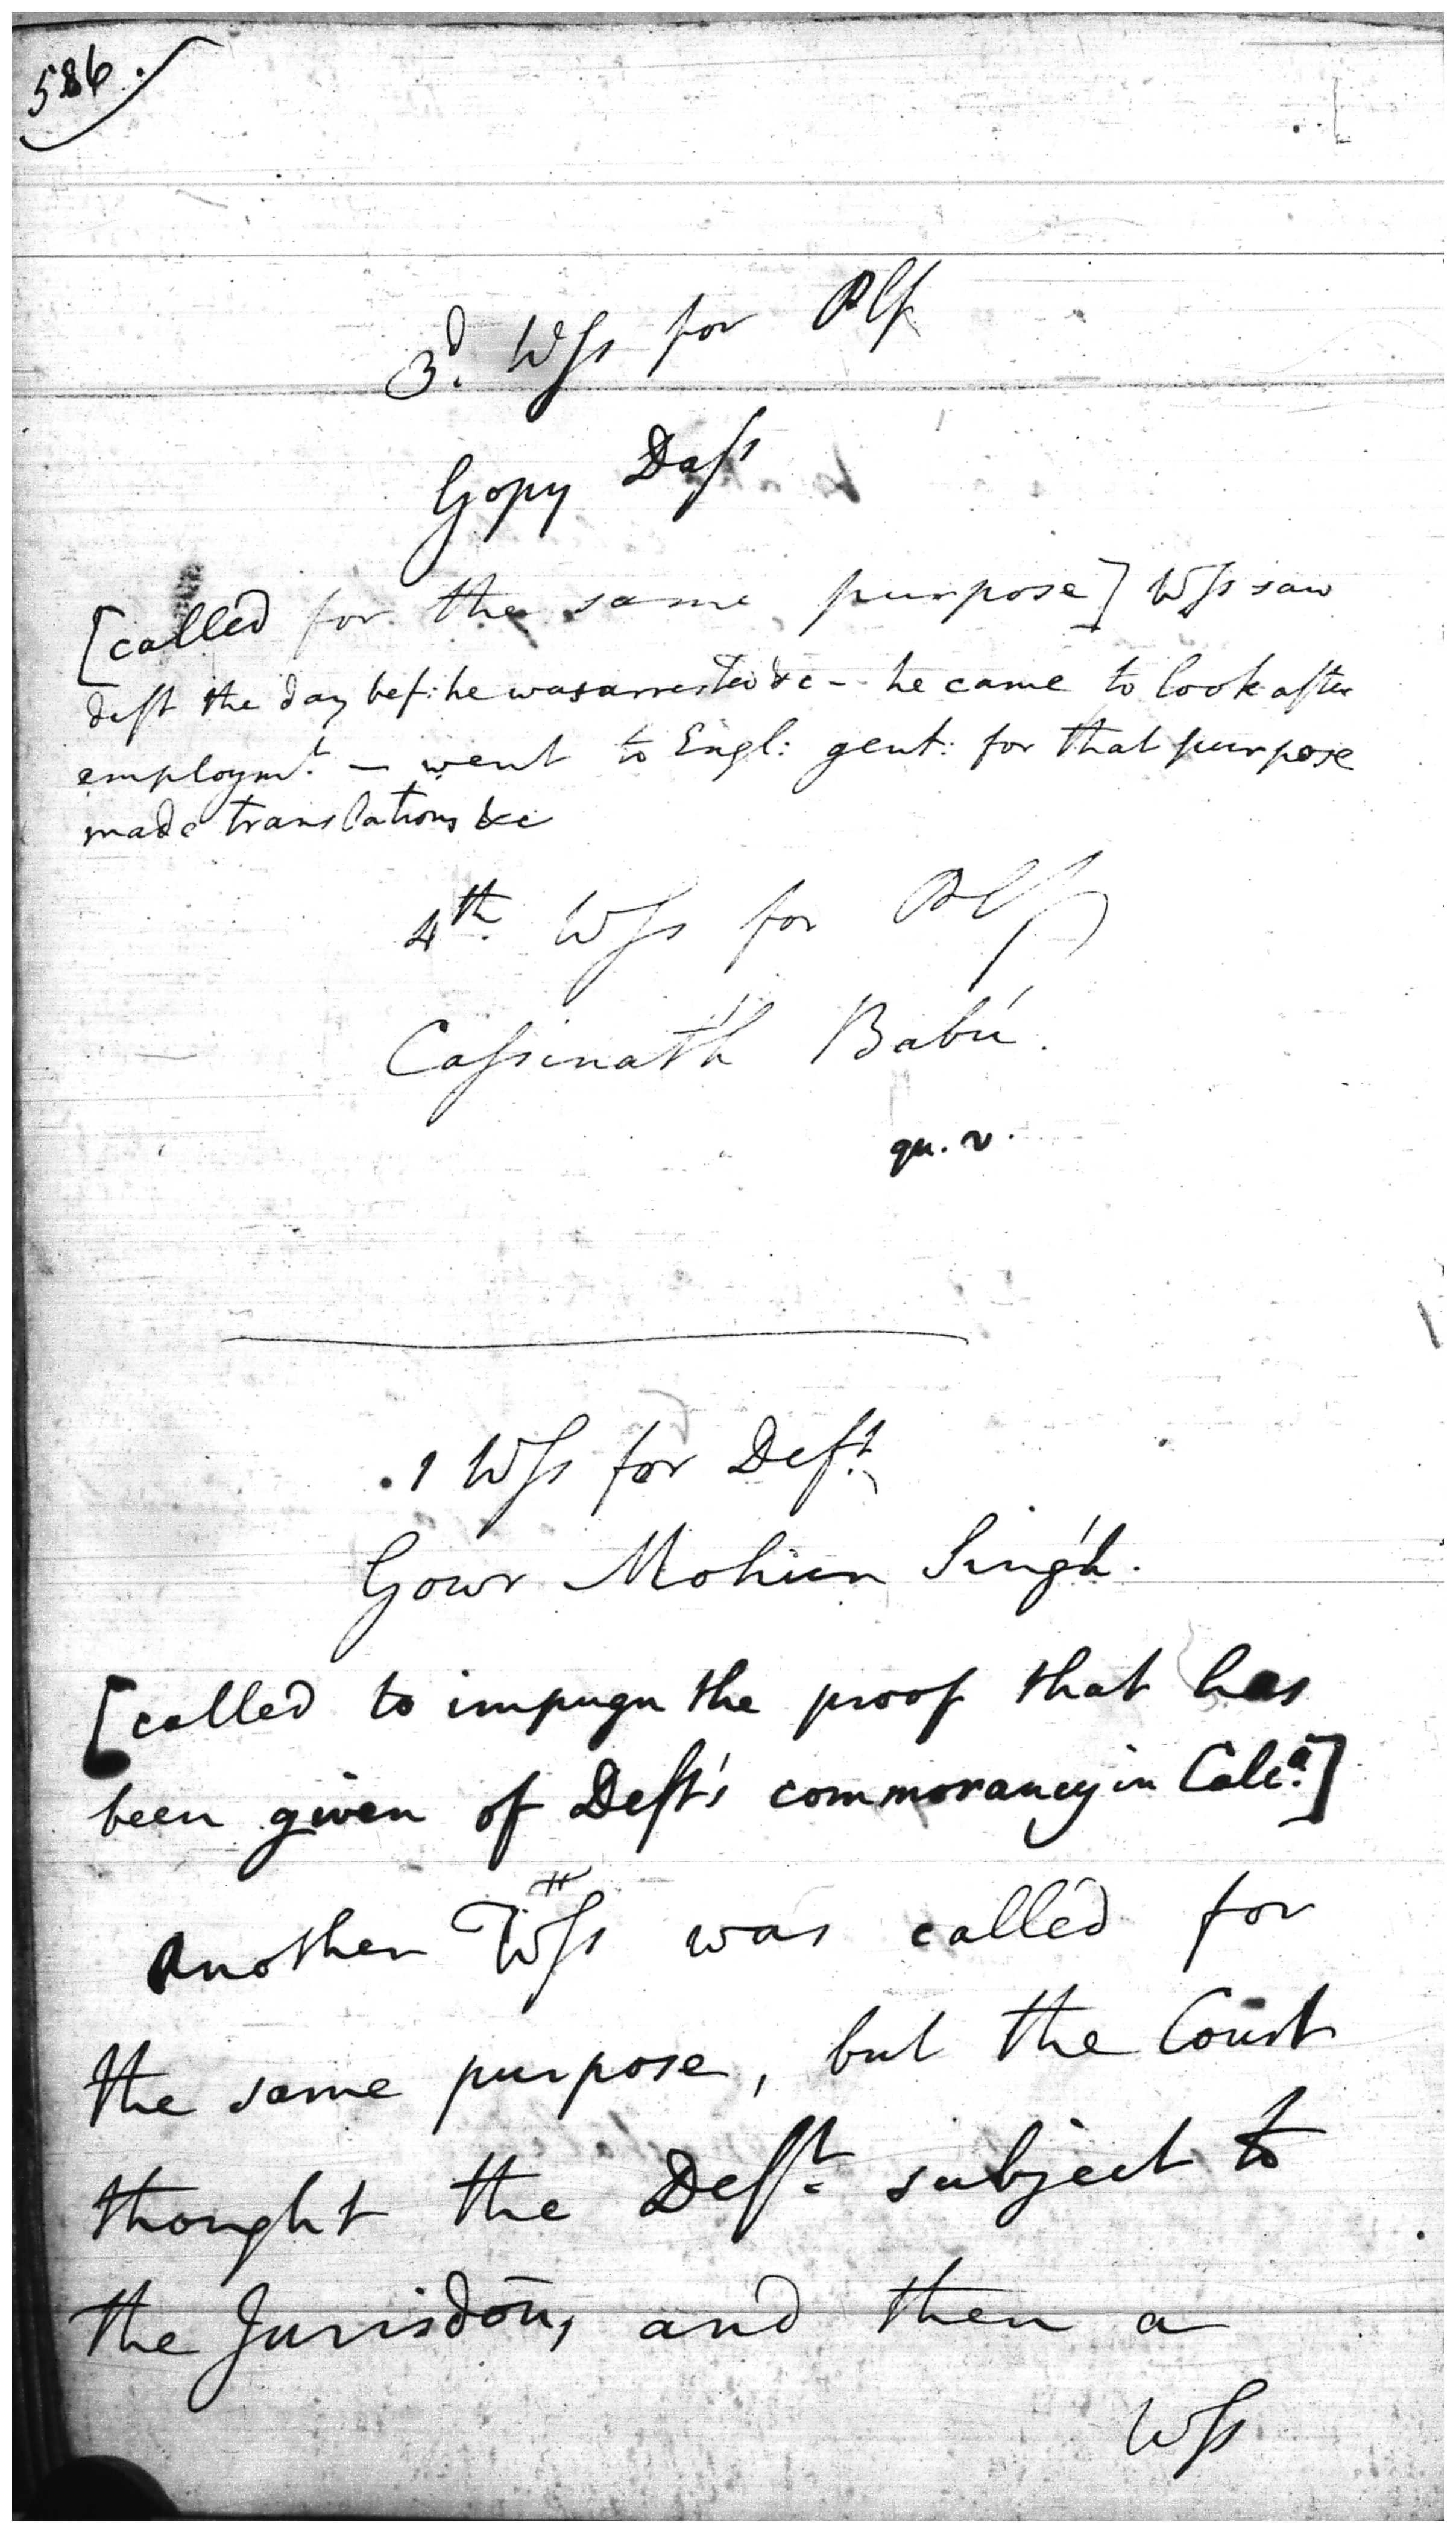 586.
3d. Wss for Plf
Gopy Dass
[called for the same purpose] Wss saw
deft the day bef: he was arrested &c - he came to look after
employmt. - went to Engl: gent: for that purpose
made translations &c
4th. Wss for Plf
Cassinath Babú.
qu. v.
1 Wss for Deft.
Gowr Mohun Singh.
[called to impugn the proof that has
been given of Deft's commorancy in Calca.]
Another Wss was called for
the same purpose, but the Court
thought the Deft. subject to
the Jurisdon, and then a
Wss